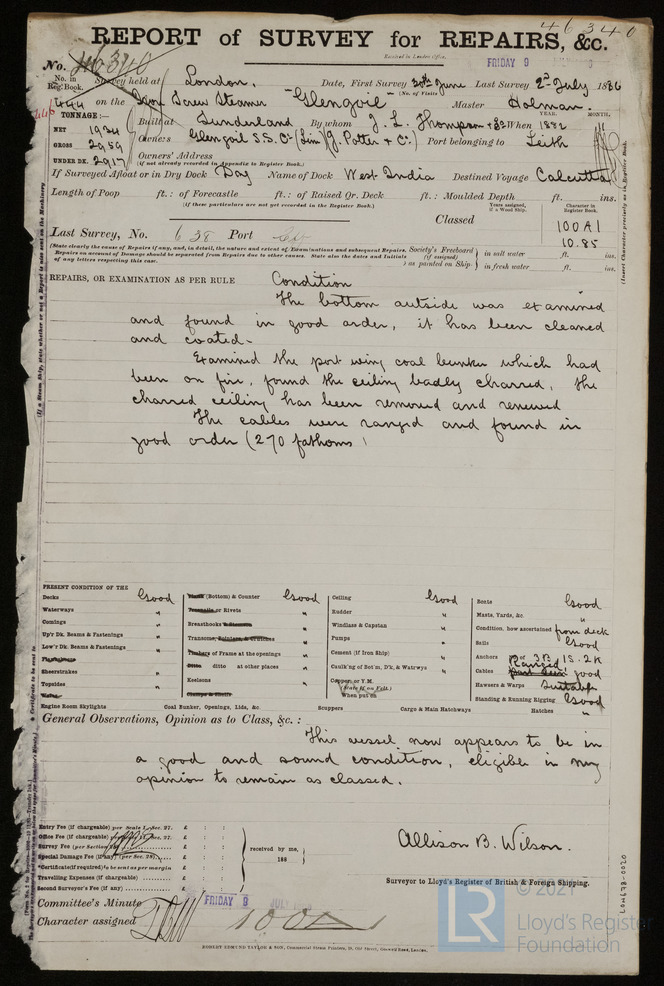 46340
REPORT of SURVEY for REPAIRS, &c.
Received in London Office,
FRIDAY 9
No. 46340
No. in Reg. Book. Survey held at London, Date, First Survey 30th June Last Survey 2nd July 1886
(No. of Visits)
444 on the Iron Screw Steamer "Glengoil" Master Holman
TONNAGE:— Built at Sunderland By whom J. L. Thompson & Ss When 1882
YEAR. MONTH.
NET 1934
GROSS 2959 Owners Glengoil S.S. Co (Lim) (J. Potter & Co) Port belonging to Leith
UNDER DK. 2917 Owners' Address
(if not already recorded in Appendix to Register Book.)
If Surveyed Afloat or in Dry Dock Dry Name of Dock West India Destined Voyage Calcutta
Length of Poop ft.: of Forecastle ft.: of Raised Qr. Deck ft.: Moulded Depth ft. ins.
(If these particulars are not yet recorded in the Register Book.)
Years assigned, if a Wood Ship. Character in Register Book.
Classed 100A1
10.85
Last Survey, No. 638 Port
(State clearly the cause of Repairs if any, and, in detail, the nature and extent of Examinations and subsequent Repairs.
Repairs on account of Damage should be separated from Repairs due to other causes. State also the dates and Initials
of any letters respecting this case.)
Society's Freeboard (if assigned) as painted on Ship
in salt water ft. ins.
in fresh water ft. ins.
(Insert Character precisely as in Register Book.)
REPAIRS, OR EXAMINATION AS PER RULE Condition
The bottom outside was examined
and found in good order, it has been cleaned
and coated.
Examined the port wing coal bunker which had
been on fire, found the ceiling badly charred, the
charred ceiling has been removed and renewed
The cables were ranged and found in
good order (270 fathoms)
PRESENT CONDITION OF THE
Decks Good
Waterways "
Comings "
Up'r Dk. Beams & Fastenings "
Low'r Dk. Beams & Fastenings "
Planksheers
Sheerstrakes "
Topsides "
Wales
Plank (Bottom) & Counter Good
Treenails or Rivets "
Breasthooks "
Transoms, "
Timbers of Frame at the openings "
Ditto ditto at other places "
Keelsons "
Clamps & Shelfs
Ceiling Good
Rudder "
Windlass & Capstan "
Pumps "
Cement (if Iron Ship) "
Caulk'g of Bot'm, D'k, & Watrwys "
Copper, or Y.M.
(State if on Felt.)
When put on
Boats Good
Masts, Yards, &c. "
Condition, how ascertained from deck
Sails Good
Anchors No. of 3B. 1S. 2K
Cables Ranged good
Hawsers & Warps Suitable
Standing & Running Rigging Good
Engine Room Skylights Coal Bunker, Openings, Lids, &c. Scuppers Cargo & Main Hatchways Hatches "
General Observations, Opinion as to Class, &c. :
This vessel now appears to be in
a good and sound condition, eligible in my
opinion to remain as classed.
Entry Fee (if chargeable) per Scale I., Sec. 27. £ : :
Office Fee (if chargeable) £ : :
Survey Fee (per Section £ : :
Special Damage Fee (if any) (per Sec. 28) £ : :
*Certificate (if required) to be sent as per margin
Travelling Expenses (if chargeable) £ : :
Second Surveyor's Fee (if any) £ : :
received by me,
188
Allison B. Wilson.
Surveyor to Lloyd's Register of British & Foreign Shipping.
Committee's Minute FRIDAY 9 JULY
Character assigned 100A1
ROBERT EDMUND TAYLOR & SON, Commercial Steam Printers, 19, Old Street, Goswell Road, London.
LON678-0020
© 2021
LR
Lloyd's Register
Foundation